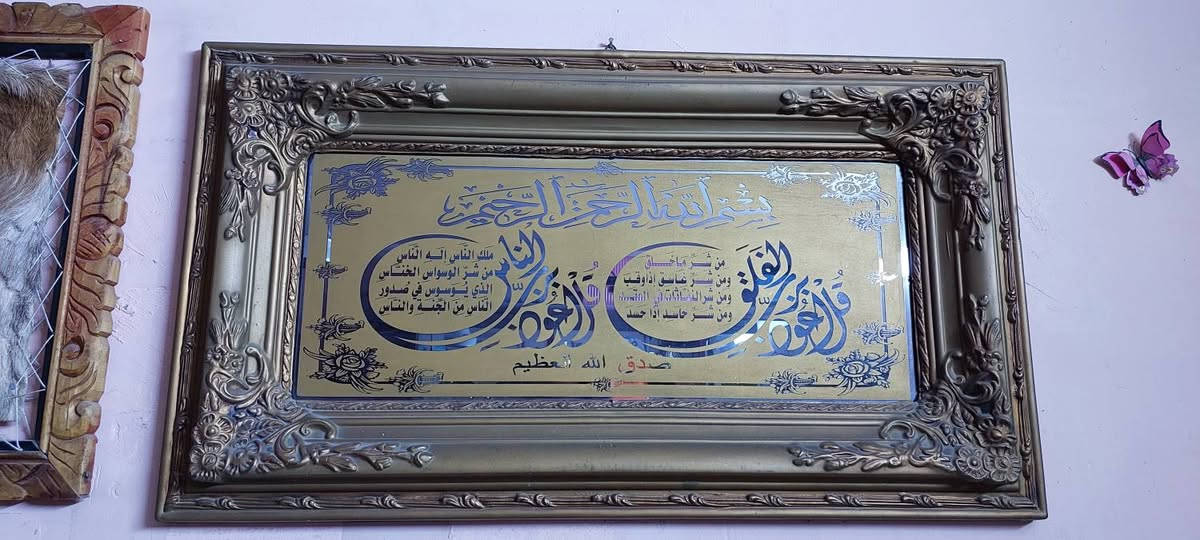 بسم الله الرحمن الرحيم
قل أعوذ برب الفلق
من شر ما خلق
ومن شر غاسق إذا وقب
ومن شر النفاثات في العقد
ومن شر حاسد إذا حسد
قل أعوذ برب الناس
ملك الناس إله الناس
من شر الوسواس الخناس
الذي يوسوس في صدور
الناس من الجنة والناس
صدق الله العظيم